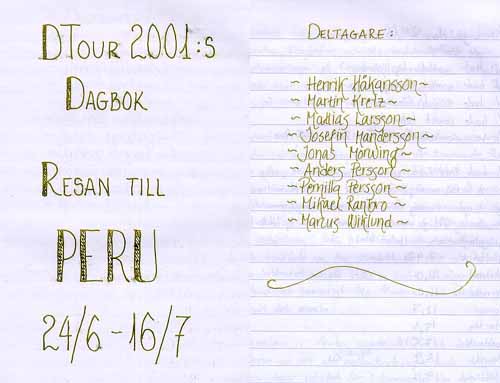 DTour 2001:s
Dagbok
Resan till
PERU
24/6 - 16/7
Deltagare:
~ Henrik Håkansson ~
~ Martin Kretz ~
~ Mattias Larsson ~
~ Josefin Mandersson ~
~ Jonas Morwing ~
~ Anders Persson ~
~ Pernilla Persson ~
~ Mikael Rantro ~
~ Marcus Wiklund ~